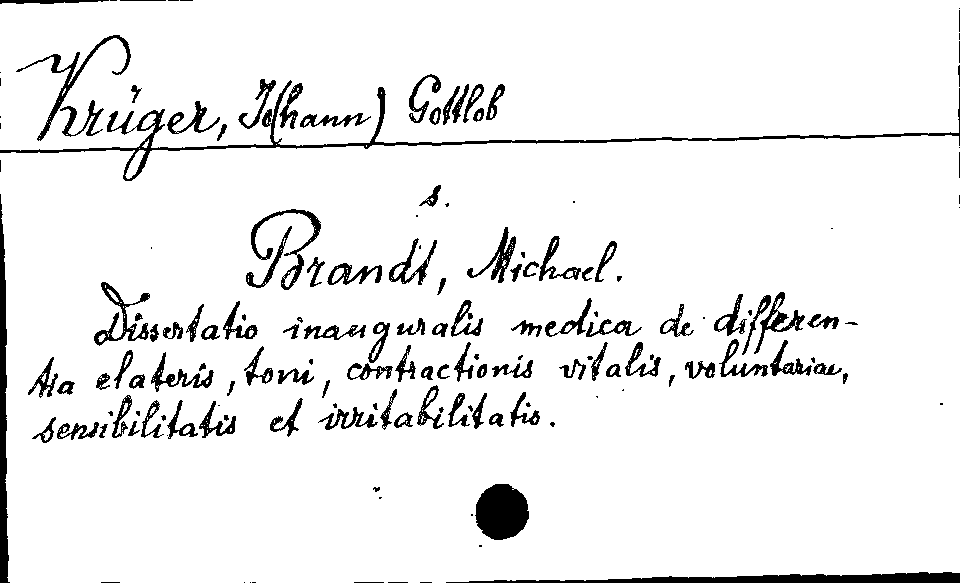 Krüger, Jo(hann) Gottlob
s.
Brandt, Michael.
Dissertatio inauguralis medica de differen-
tia elateris, toni, contractionis vitalis, voluntariae,
sensibilitatis et irritabilitatis.